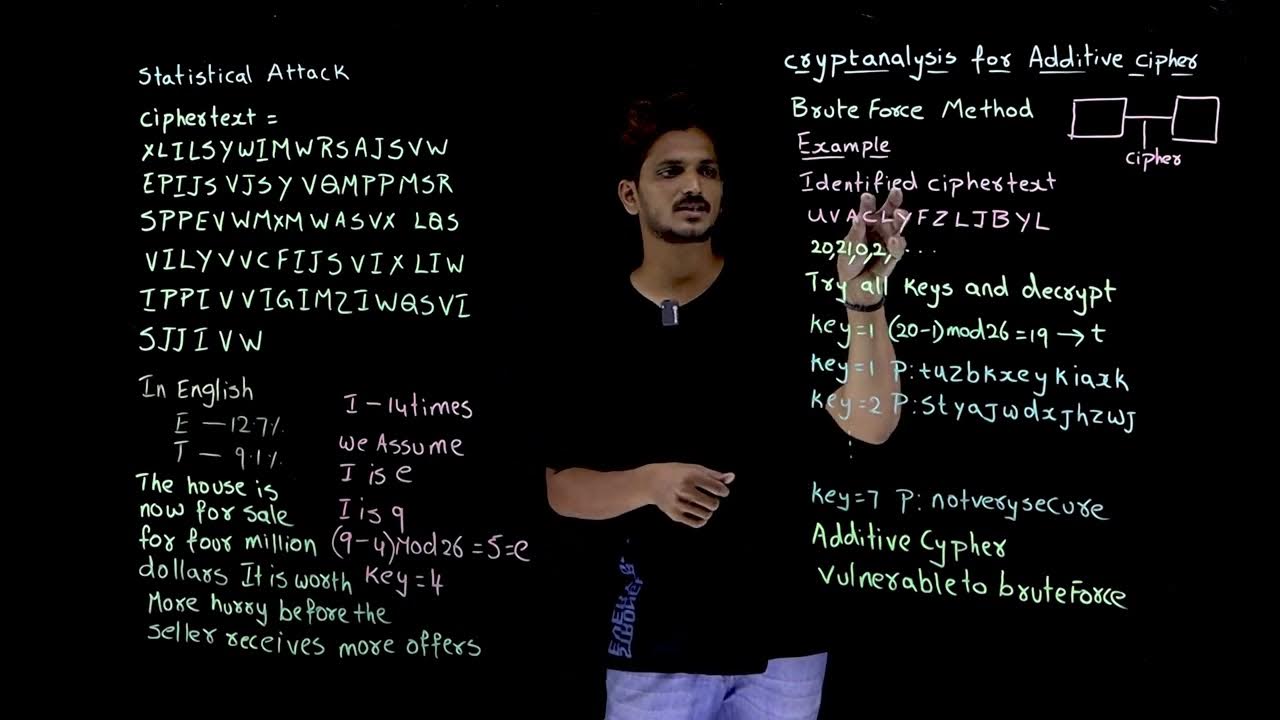 Statistical Attack
ciphertext =
XLILSYWIMWRSAJSVW
EPIJSVJSYVQMPPMSR
SPPEVWMXMWASVX LQS
VILYVVCFIJSVIXLIW
IPPIVVIGIMZIWQSVI
SJJIVW
In English
E — 12.7%
T — 9.1%
The house is
now for sale
for four million
dollars It is worth
More hurry before the
seller receives more offers
I - 14times
we Assume
I is e
I is 9
(9-4)Mod26=5=e
Key=4
cryptanalysis for Additive cipher
Brute Force Method
cipher
Example
Identified ciphertext
UVACLYFZLJBYL
20,21,0,2, ...
Try all keys and decrypt
key=1 (20-1)mod26=19→t
key=1 P:tuzbkxeykiaxk
key=2 P:styajwdxjhzwj
key=7 P: notverysecure
Additive Cypher
Vulnerable to bruteForce